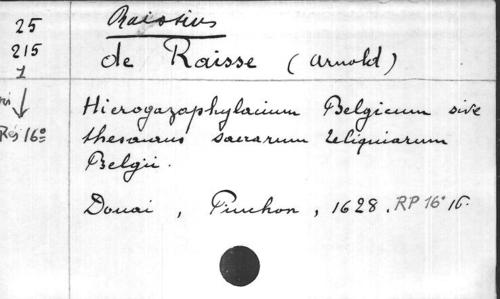 Raissius
25
215
1
de Raisse (Arnold)
Rés 16º
Hierogazophylacium Belgicum sive
thesaurus sacrarum reliquiarum
Belgii.
Douai, Pinchon, 1628. RP 16º 16.